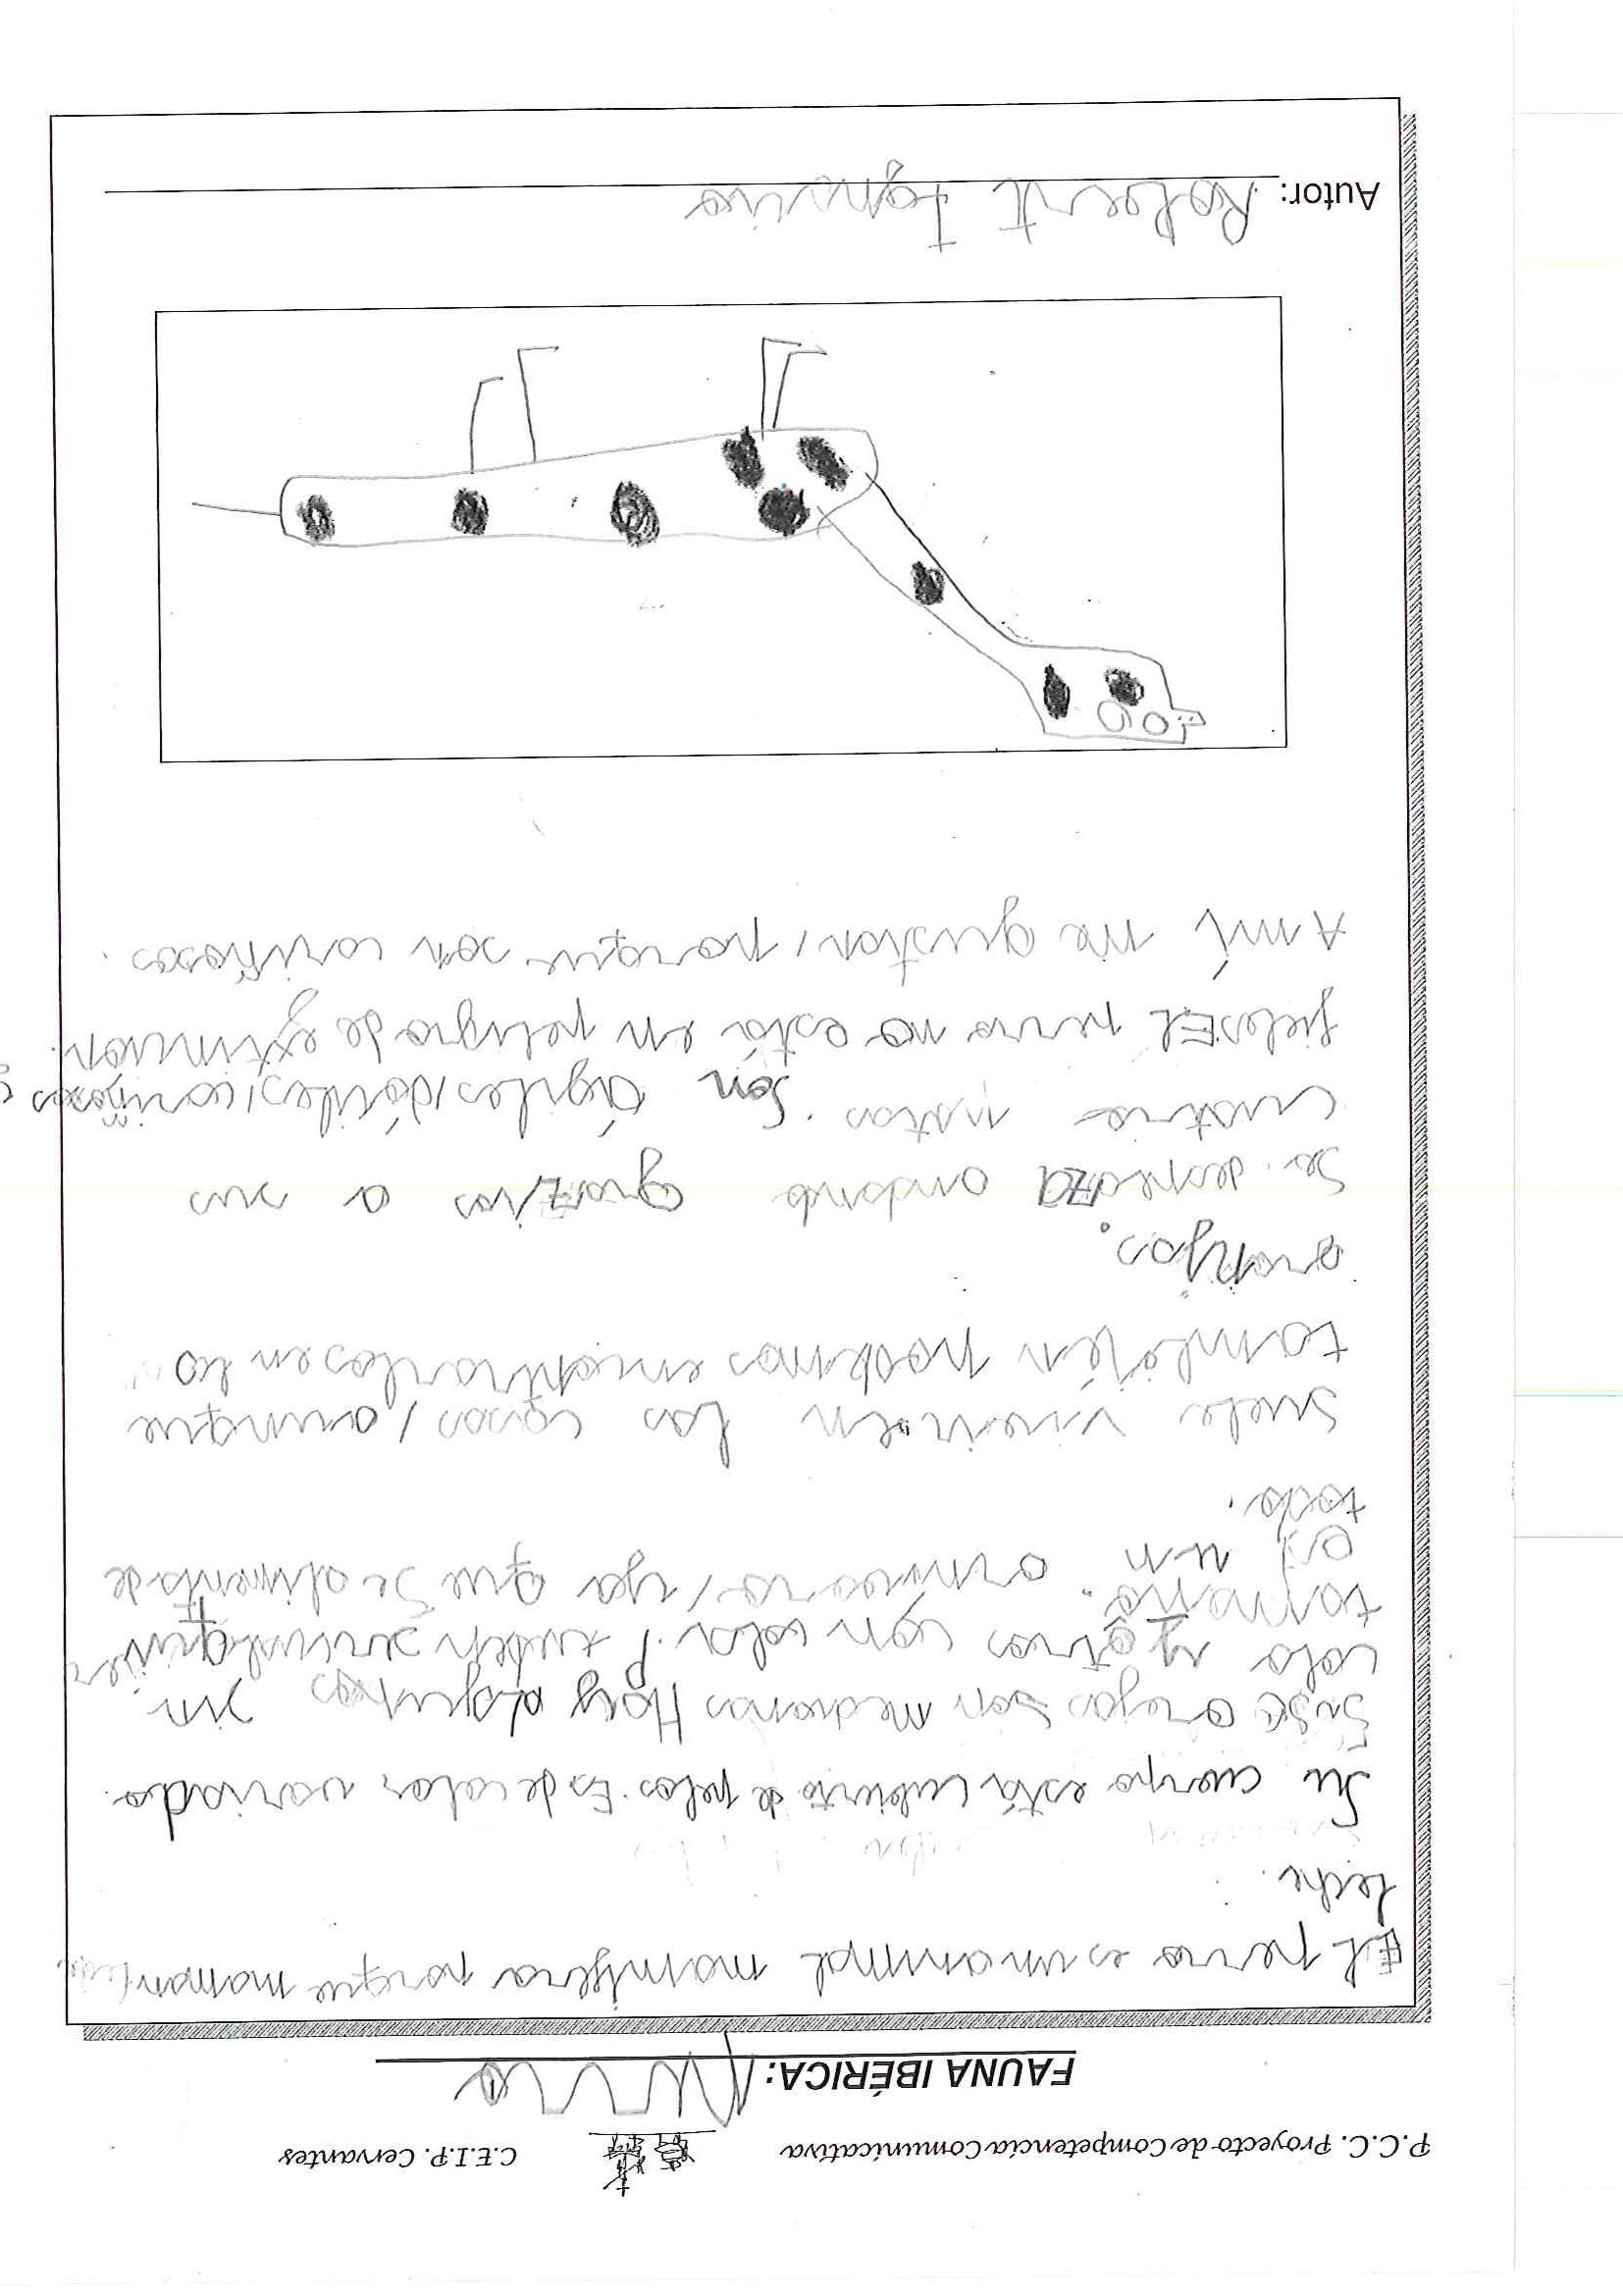 P.C.C. Proyecto de Competencia Comunicativa C.E.I.P. Cervantes
FAUNA IBÉRICA: Perro
El perro es un animal mamífero porque maman
leche.
Su cuerpo está cubierto de pelos. Es de color variado.
orejas son medianas Hay algunos sin
cola y otros con cola.
tamaño.
un omnivoro, ya que se alimenta de
todo.
Suele vivir en las casas, aunque
también podemos encontrarlos en la
granjas.
Se despedza andando grazias a sus
cuatro patas. Son ágiles, dóciles, cariñosos
fieles. El perro no está en peligro de extinción.
A mí me gustan, porque son cariñosos.
Autor: Robert Ignacio